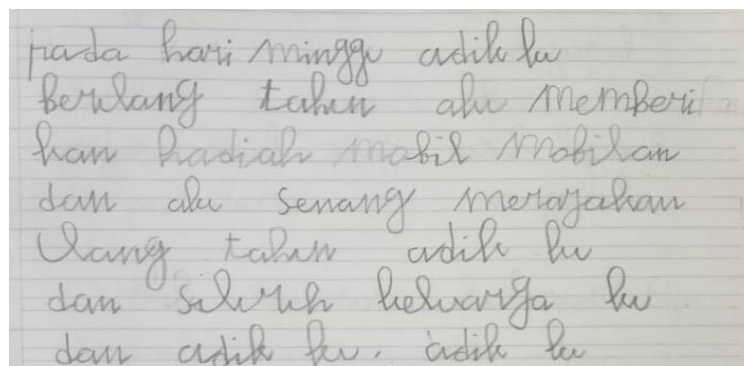 pada hari minggu adik ku
berulang tahun aku memberi
kan hadiah mobil mobilan
dan aku senang merayakan
Ulang tahun adik ku
dan seluruh keluarga ku
dan adik ku. adik ku